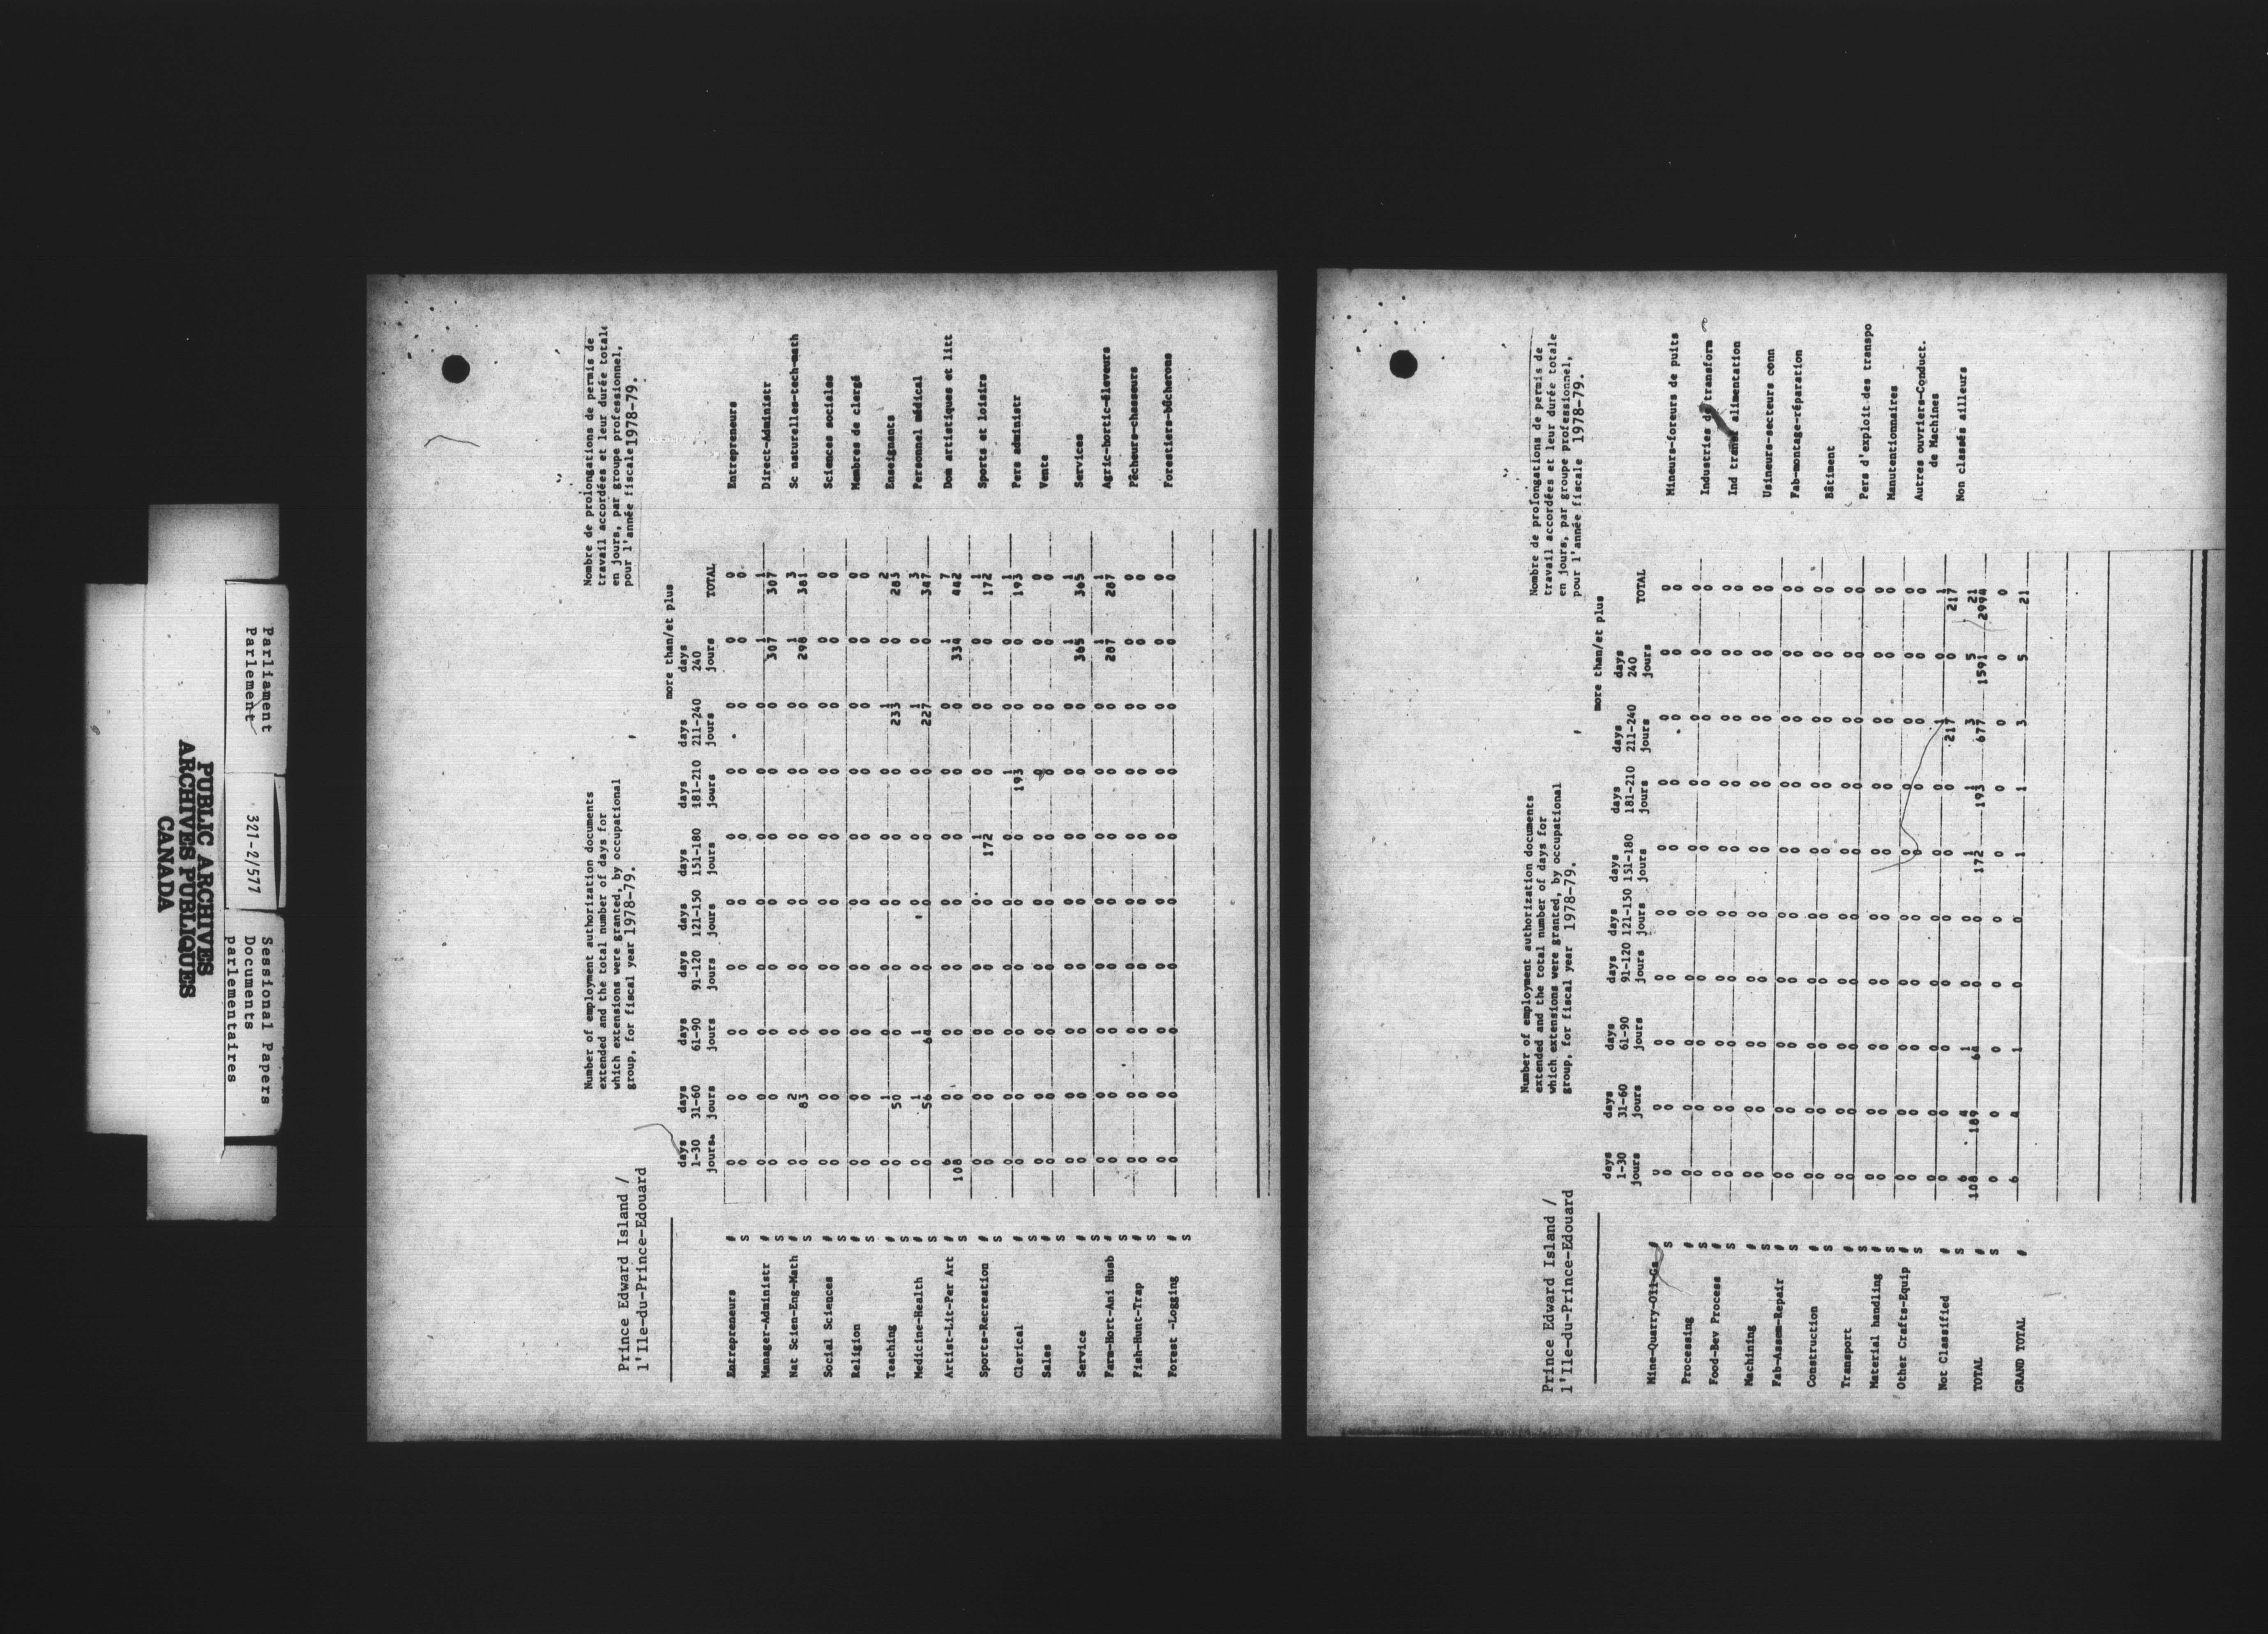 Parliament
Parlement
321-2/577
Sessional Papers
Documents
parlementaires
PUBLIC ARCHIVES
ARCHIVES PUBLIQUES
CANADA
Prince Edward Island /
l'Ile-du-Prince-Edouard
Number of employment authorization documents
extended and the total number of days for
which extensions were granted, by occupational
group, for fiscal year 1978-79.
Nombre de prolongations de permis de
travail accordées et leur durée totale
en jours, par groupe professionnel,
pour l'année fiscale 1978-79.
more than/et plus
days days days days days days days days days
1-30 31-60 61-90 91-120 121-150 151-180 181-210 211-240 240
jours jours jours jours jours jours jours jours jours TOTAL
Entrepreneurs # 0 0 0 0 0 0 0 0 0 0 Entrepreneurs
S 0 0 0 0 0 0 0 0 0 0
Manager-Administr # 0 0 0 0 0 0 0 0 1 1 Direct-Administr
S 0 0 0 0 0 0 0 0 307 307
Nat Scien-Eng-Math # 0 2 0 0 0 0 0 0 1 3 Sc naturelles-tech-math
S 0 83 0 0 0 0 0 0 298 381
Social Sciences # 0 0 0 0 0 0 0 0 0 0 Sciences sociales
S 0 0 0 0 0 0 0 0 0 0
Religion # 0 0 0 0 0 0 0 0 0 0 Membres de clergé
S 0 0 0 0 0 0 0 0 0 0
Teaching # 0 1 0 0 0 0 0 1 0 2 Enseignants
S 0 50 0 0 0 0 0 233 0 283
Medicine-Health # 0 1 1 0 0 0 0 1 0 3 Personnel médical
S 0 56 64 0 0 0 0 227 0 347
Artist-Lit-Per Art # 6 0 0 0 0 0 0 0 1 7 Dom artistiques et litt
S 108 0 0 0 0 0 0 0 334 442
Sports-Recreation # 0 0 0 0 0 1 0 0 0 1 Sports et loisirs
S 0 0 0 0 0 172 0 0 0 172
Clerical # 0 0 0 0 0 0 1 0 0 1 Pers administr
S 0 0 0 0 0 0 193 0 0 193
Sales # 0 0 0 0 0 0 0 0 0 0 Vente
S 0 0 0 0 0 0 0 0 0 0
Service # 0 0 0 0 0 0 0 0 1 1 Services
S 0 0 0 0 0 0 0 0 365 365
Farm-Hort-Ani Husb # 0 0 0 0 0 0 0 0 1 1 Agric-hortic-éleveurs
S 0 0 0 0 0 0 0 0 287 287
Fish-Hunt-Trap # 0 0 0 0 0 0 0 0 0 0 Pêcheurs-chasseurs
S 0 0 0 0 0 0 0 0 0 0
Forest -Logging # 0 0 0 0 0 0 0 0 0 0 Forestiers-bûcherons
S 0 0 0 0 0 0 0 0 0 0
Prince Edward Island /
l'Ile-du-Prince-Edouard
Number of employment authorization documents
extended and the total number of days for
which extensions were granted, by occupational
group, for fiscal year 1978-79.
Nombre de prolongations de permis de
travail accordées et leur durée totale
en jours, par groupe professionnel,
pour l'année fiscale 1978-79.
more than/et plus
days days days days days days days days days
1-30 31-60 61-90 91-120 121-150 151-180 181-210 211-240 240
jours jours jours jours jours jours jours jours jours TOTAL
Mine-Quarry-Oil-Gs # 0 0 0 0 0 0 0 0 0 0 Mineurs-foreurs de puits
S 0 0 0 0 0 0 0 0 0 0
Processing # 0 0 0 0 0 0 0 0 0 0 Industries de transform
S 0 0 0 0 0 0 0 0 0 0
Food-Bev Process # 0 0 0 0 0 0 0 0 0 0 Ind transf alimentation
S 0 0 0 0 0 0 0 0 0 0
Machining # 0 0 0 0 0 0 0 0 0 0 Usineurs-secteurs conn
S 0 0 0 0 0 0 0 0 0 0
Fab-Assem-Repair # 0 0 0 0 0 0 0 0 0 0 Fab-montage-réparation
S 0 0 0 0 0 0 0 0 0 0
Construction # 0 0 0 0 0 0 0 0 0 0 Bâtiment
S 0 0 0 0 0 0 0 0 0 0
Transport # 0 0 0 0 0 0 0 0 0 0 Pers d'exploit des transpo
S 0 0 0 0 0 0 0 0 0 0
Material handling # 0 0 0 0 0 0 0 0 0 0 Manutentionnaires
S 0 0 0 0 0 0 0 0 0 0
Other Crafts-Equip # 0 0 0 0 0 0 0 0 0 0 Autres ouvriers-Conduct.
S 0 0 0 0 0 0 0 0 0 0 de Machines
Not Classified # 0 0 0 0 0 0 0 1 0 1 Non classés ailleurs
S 0 0 0 0 0 0 0 217 0 217
TOTAL # 6 4 1 0 0 1 1 3 5 21
S 108 189 64 0 0 172 193 677 1591 2994
0 0 0 0 0 0 0 0 0 0
GRAND TOTAL # 6 4 1 0 0 1 1 3 5 21